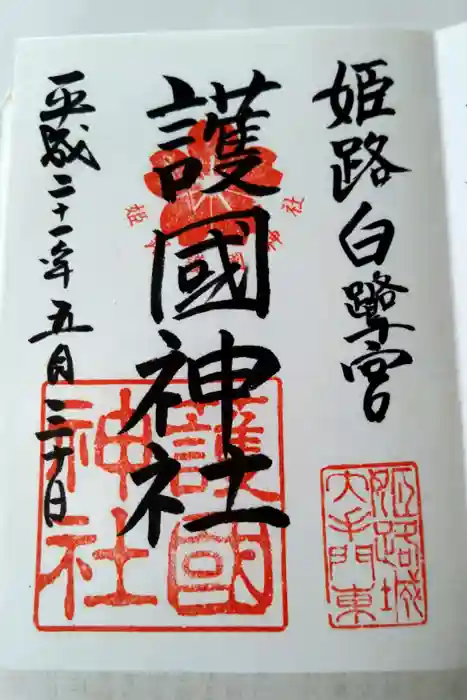 姫路白鷺宮
姫路城
大手門東
護國神社
護國
神社
平成二十一年五月三十日